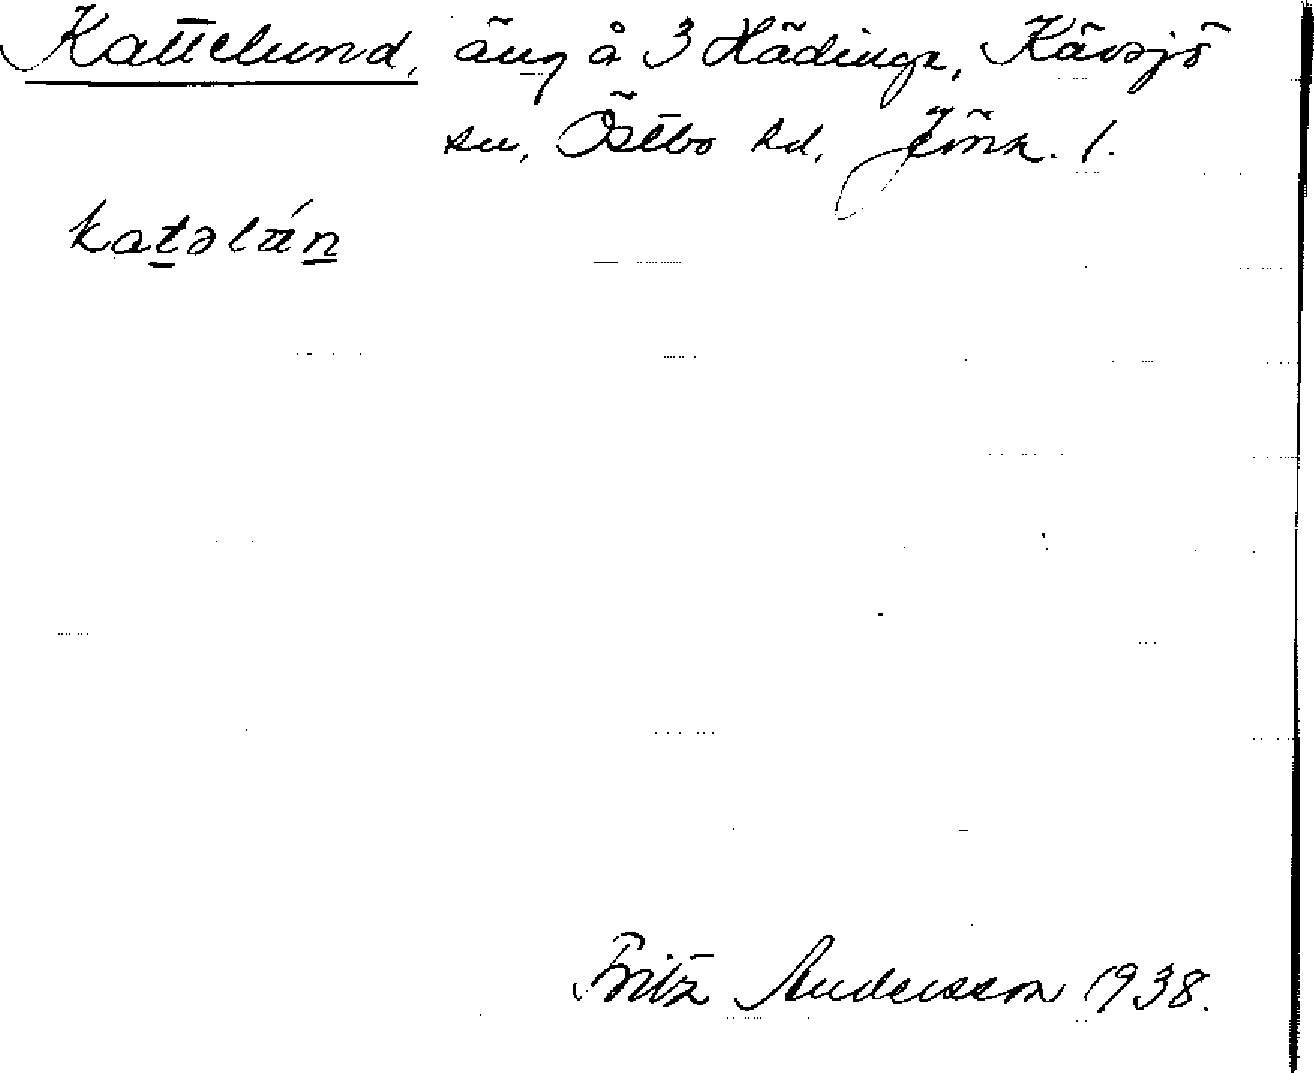 Kattelund, äng å 3 Hädinge, Kävsjö
sn, Östbo hd, Jönk. l.
katəlún
Fritz Andersson 1938.